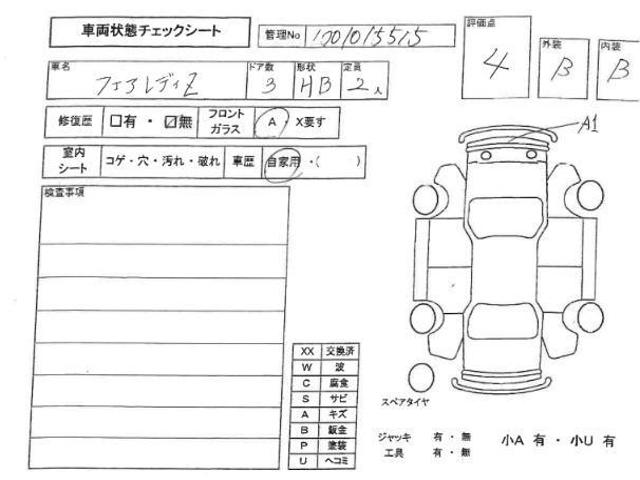 車両状態チェックシート
管理No 1201015515
評価点 4
外装 B
内装 B
車名 フェアレディZ
ドア数 3
形状 HB
定員 2人
修復歴 □有・☑無
フロントガラス A・X要す
室内シート コゲ・穴・汚れ・破れ
車歴 自家用・( )
検査事項
A1
XX 交換済
W 波
C 腐食
S サビ
A キズ
B 鈑金
P 塗装
U ヘコミ
スペアタイヤ
ジャッキ 有・無
工具 有・無
小A 有・小U 有